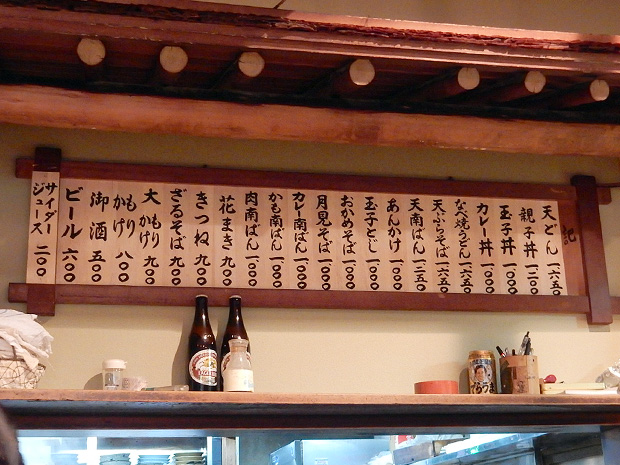 記
天どん 一六五〇
親子丼 一二〇〇
玉子丼 一〇〇〇
カレー丼 一〇〇〇
なべ焼うどん 一六五〇
天ぷらそば 一六五〇
天南ばん 一二五〇
あんかけ 一〇〇〇
玉子とじ 一〇〇〇
おかめそば 一〇〇〇
月見そば 一〇〇〇
カレー南ばん 一〇〇〇
かも南ばん 一〇〇〇
肉南ばん 一〇〇〇
花まき 九〇〇
きつね 九〇〇
ざるそば 九〇〇
大もりかけ 九〇〇
もりかけ 八〇〇
御酒 五〇〇
ビール 六〇〇
サイダー
ジュース 二〇〇